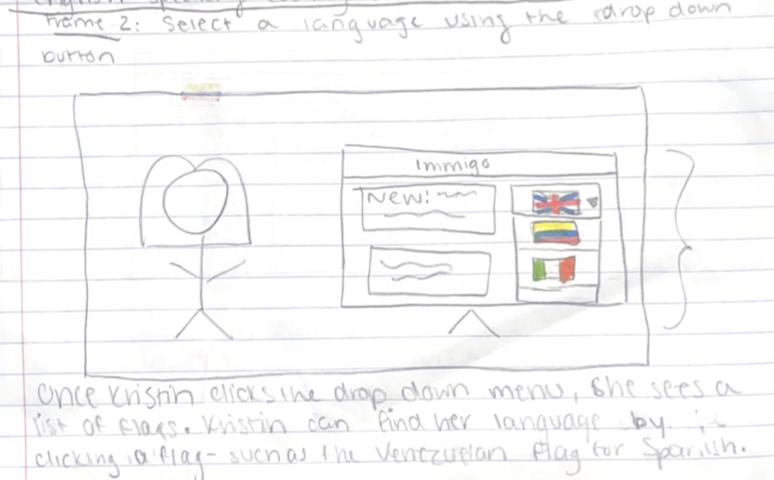 English speaking
Frame 2: Select a language using the drop down
button
Immigo
New!
Once Kristin clicks the drop down menu, she sees a
list of flags. Kristin can find her language by
clicking a flag- such as the Venezuelan flag for Spanish.